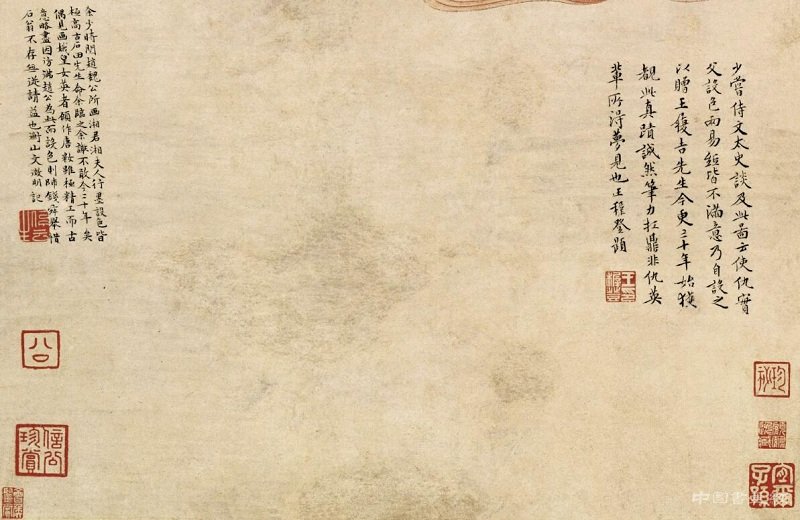 少嘗侍文太史談及此圖云使仇實
父設色兩易紙皆不滿意乃自設之
以贈王履吉先生今更三十年始獲
覩此真蹟誠然筆力扛鼎非仇英
輩所得夢見也王穉登題
余少時閱趙魏公所画湘君湘夫人行墨設色皆
極高古石田先生命余臨之余謝不敢今二十年矣
偶見画娥皇女英者顧作唐妝雖極精工而古
意略盡因仿佛趙公為此而設色則師錢舜舉惜
石翁不存無從請益也衡山文徵明記
珍祕
宜爾子孫
公
信公珍賞